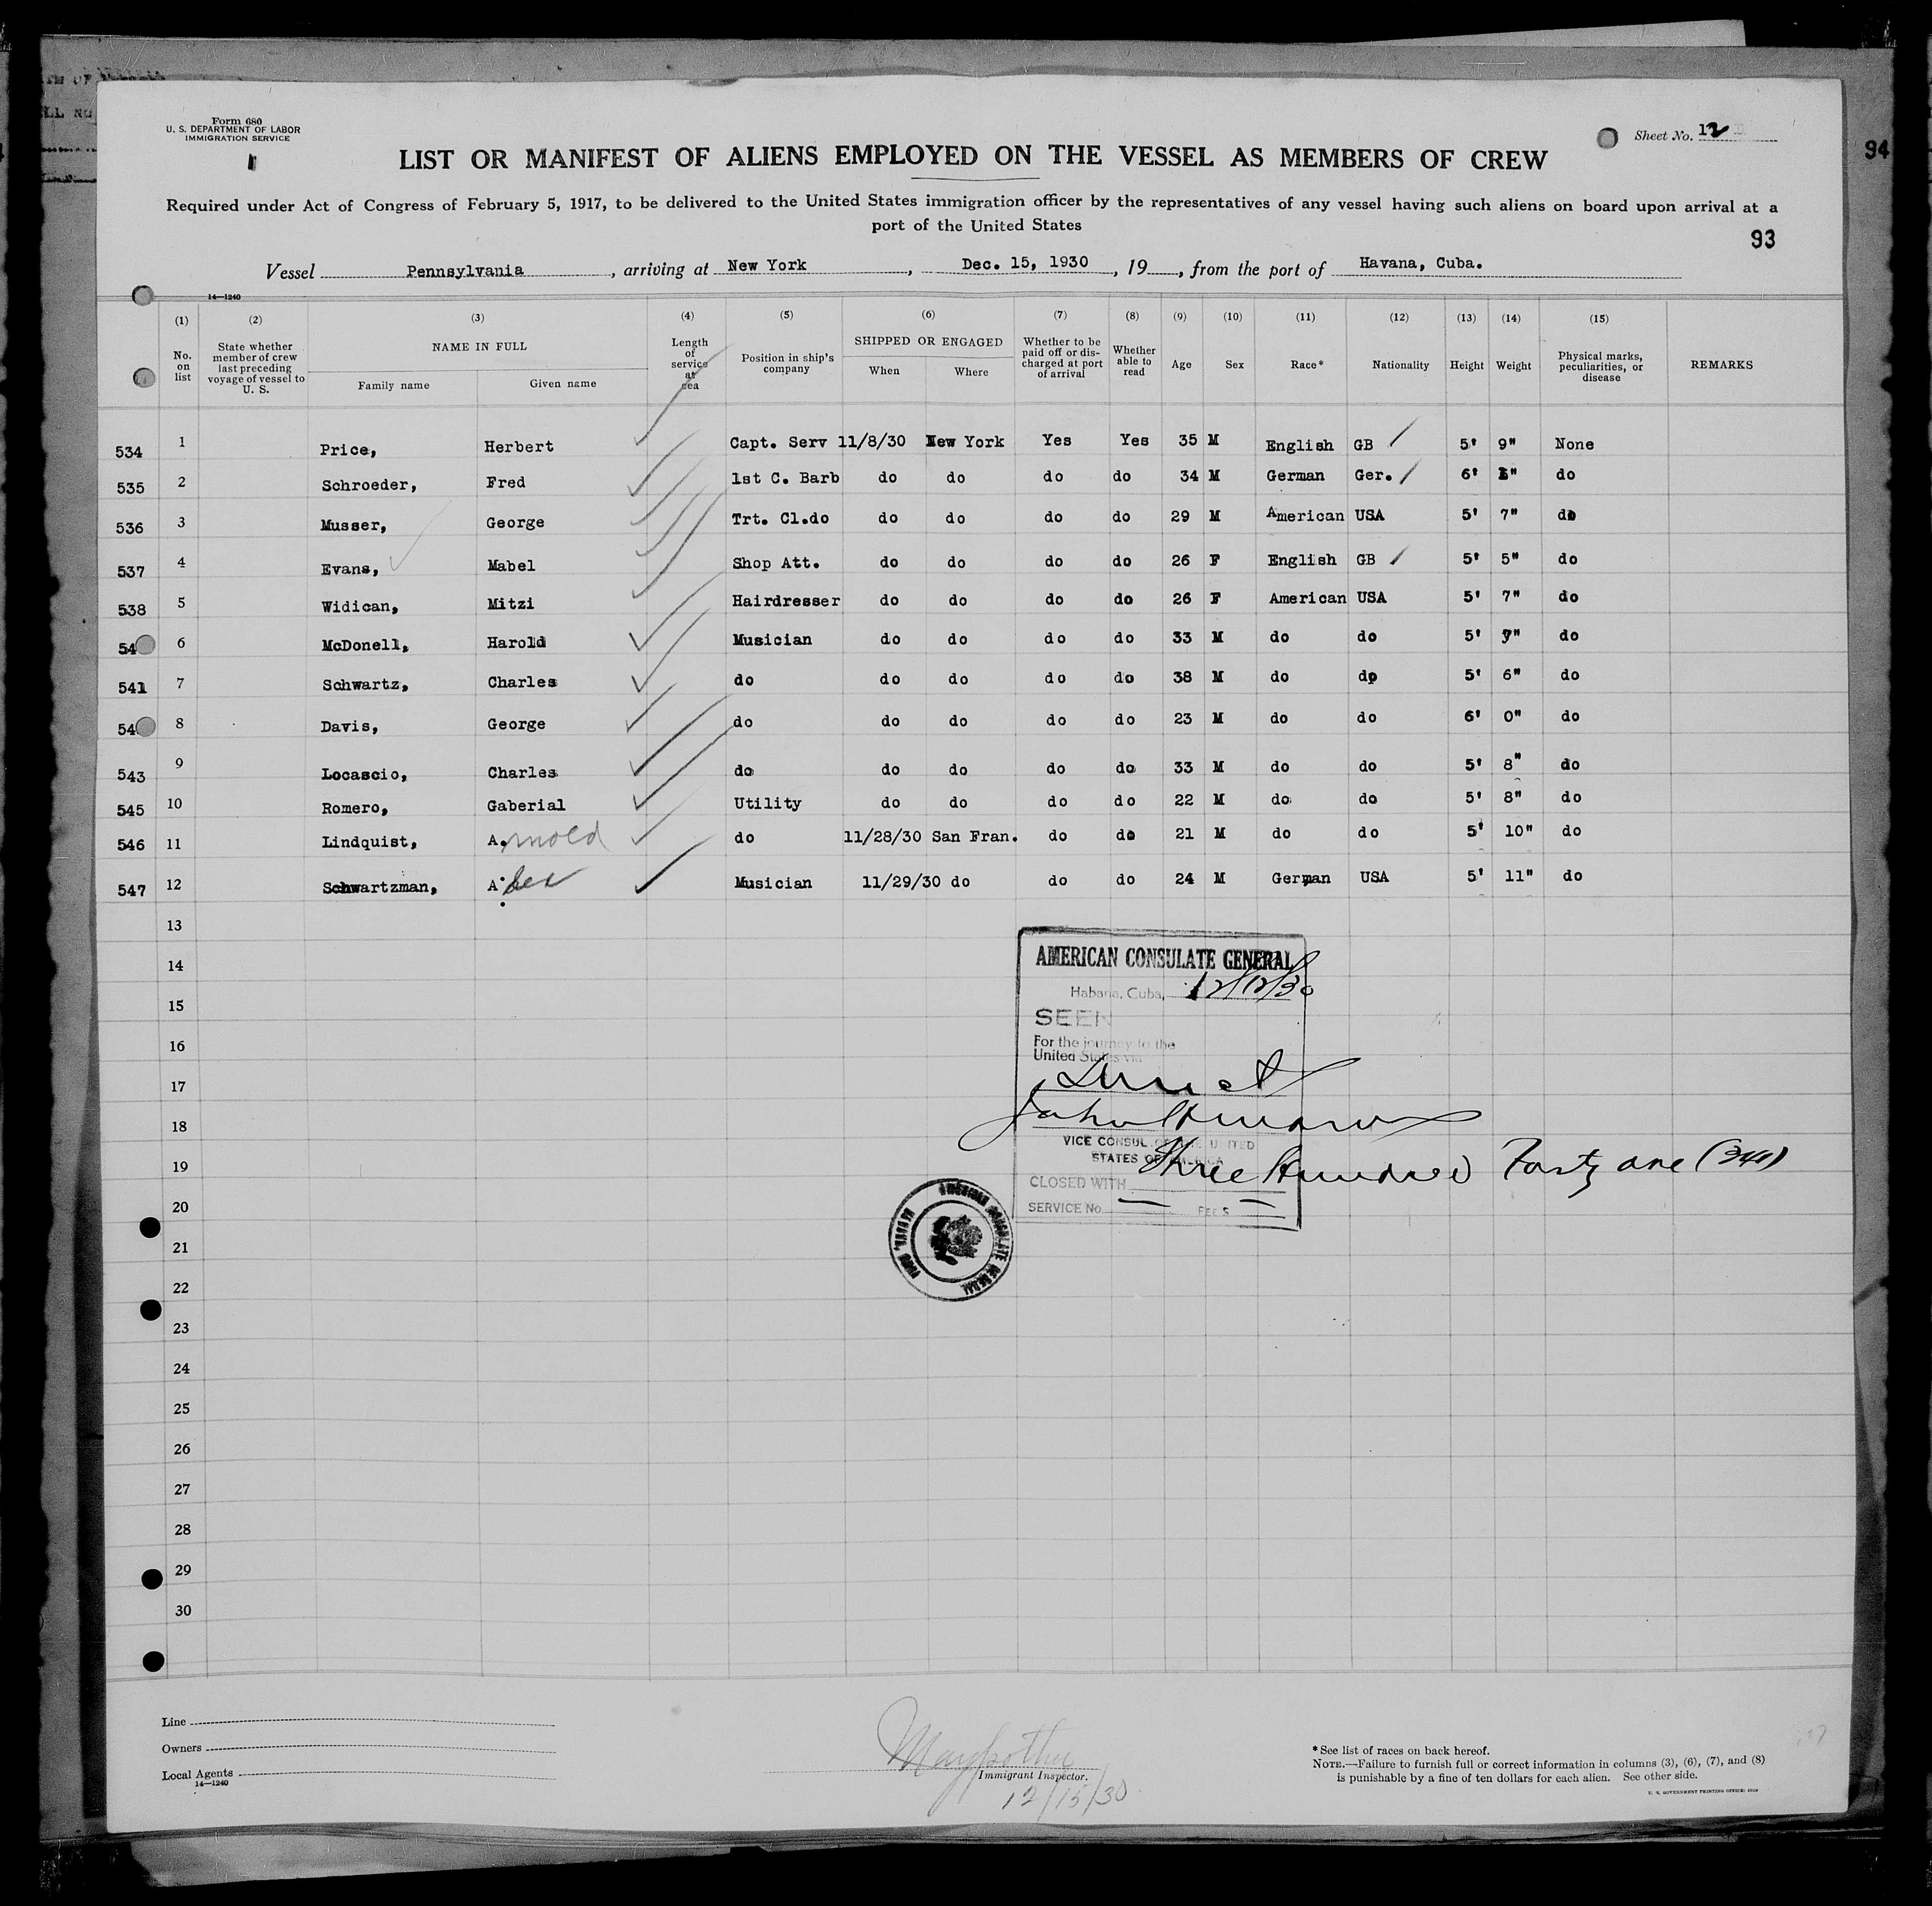 Form 680
U. S. DEPARTMENT OF LABOR
IMMIGRATION SERVICE
Sheet No. 12
94
LIST OR MANIFEST OF ALIENS EMPLOYED ON THE VESSEL AS MEMBERS OF CREW
Required under Act of Congress of February 5, 1917, to be delivered to the United States immigration officer by the representatives of any vessel having such aliens on board upon arrival at a
port of the United States
93
Vessel Pennsylvania, arriving at New York, Dec. 15, 1930, 19, from the port of Havana, Cuba.
14—1240
(1) (2) (3) (4) (5) (6) (7) (8) (9) (10) (11) (12) (13) (14) (15)
No. on list
State whether member of crew last preceding voyage of vessel to U. S.
NAME IN FULL
Family name
Given name
Length of service at sea
Position in ship's company
SHIPPED OR ENGAGED
When
Where
Whether to be paid off or discharged at port of arrival
Whether able to read
Age
Sex
Race*
Nationality
Height
Weight
Physical marks, peculiarities, or disease
REMARKS
534 1 Price, Herbert Capt. Serv 11/8/30 New York Yes Yes 35 M English GB 5' 9" None
535 2 Schroeder, Fred 1st C. Barb do do do do 34 M German Ger. 6' " do
536 3 Musser, George Trt. Cl.do do do do do 29 M American USA 5' 7" do
537 4 Evans, Mabel Shop Att. do do do do 26 F English GB 5' 5" do
538 5 Widican, Mitzi Hairdresser do do do do 26 F American USA 5' 7" do
54 6 McDonell, Harold Musician do do do do 33 M do do 5' 7" do
541 7 Schwartz, Charles do do do do do 38 M do do 5' 6" do
54 8 Davis, George do do do do do 23 M do do 6' 0" do
543 9 Locascio, Charles do do do do do 33 M do do 5' 8" do
545 10 Romero, Gaberial Utility do do do do 22 M do do 5' 8" do
546 11 Lindquist, A.rnold do 11/28/30 San Fran. do do 21 M do do 5' 10" do
547 12 Schwartzman, A Musician 11/29/30 do do do 24 M German USA 5' 11" do
13
14
15
16
17
18
19
20
21
22
23
24
25
26
27
28
29
30
AMERICAN CONSULATE GENERAL
Habana, Cuba, 12/12/30
SEEN
For the journey to the
United States via
Direct
VICE CONSUL OF THE UNITED
STATES OF AMERICA
Three Hundred Forty one (341)
CLOSED WITH
SERVICE No. FEE $
AMERICAN CONSULATE GENERAL
HABANA, CUBA
Line
Owners
Local Agents
14—1240
Immigrant Inspector.
12/15/30
*See list of races on back hereof.
NOTE.—Failure to furnish full or correct information in columns (3), (6), (7), and (8)
is punishable by a fine of ten dollars for each alien. See other side.